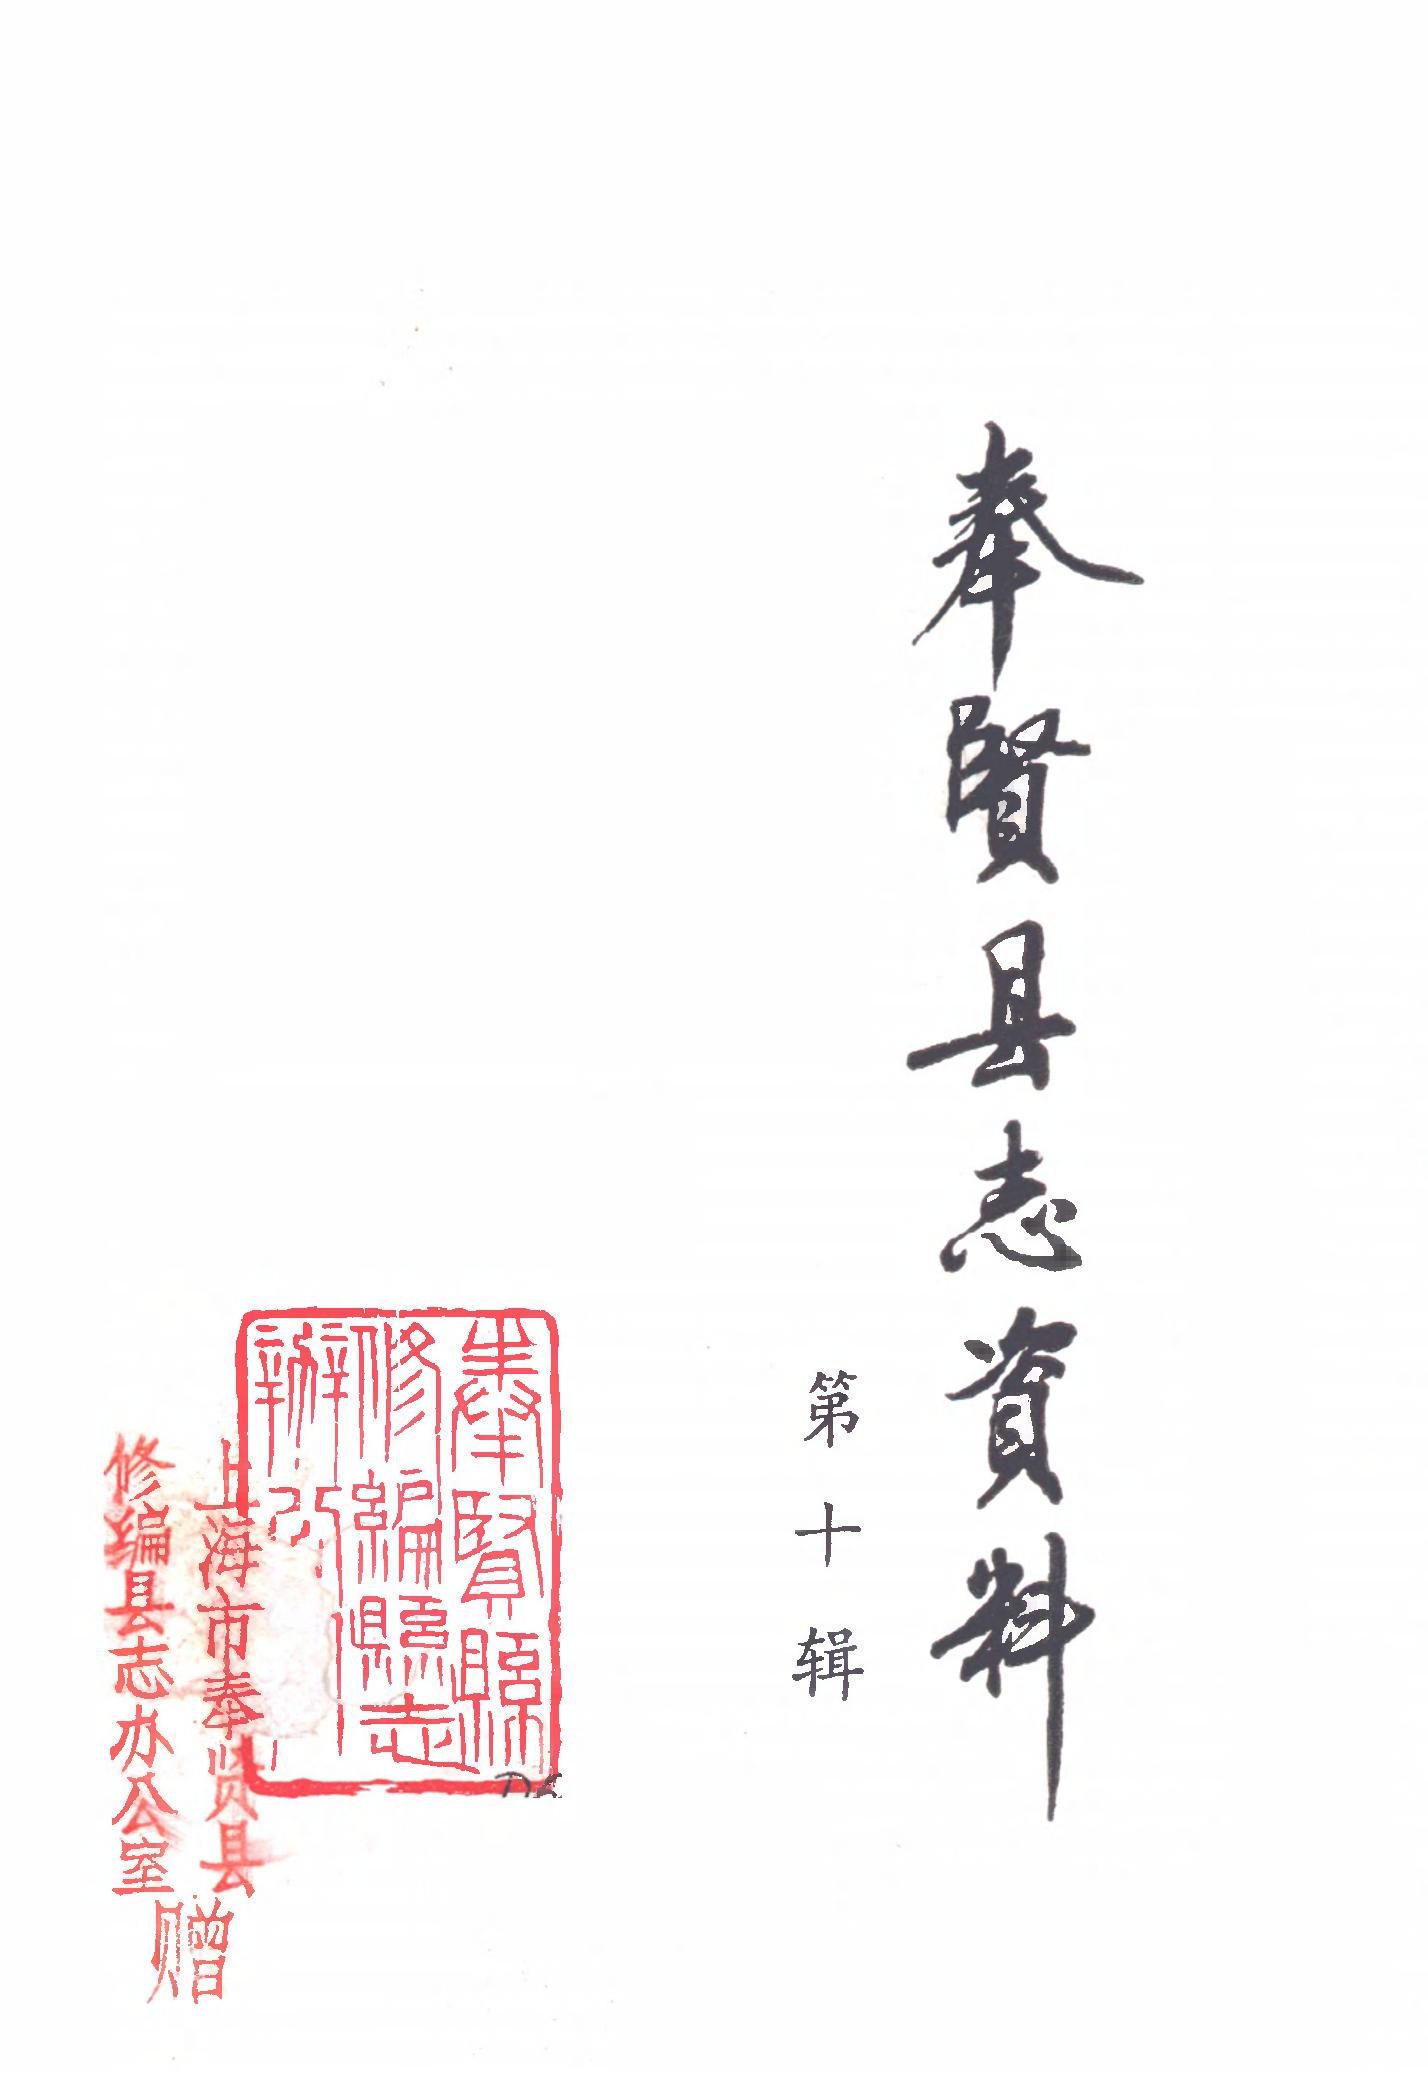 奉賢县志資料
第十辑
奉賢縣
修編縣志
辦公
上海市奉贤县
修编县志办公室
赠